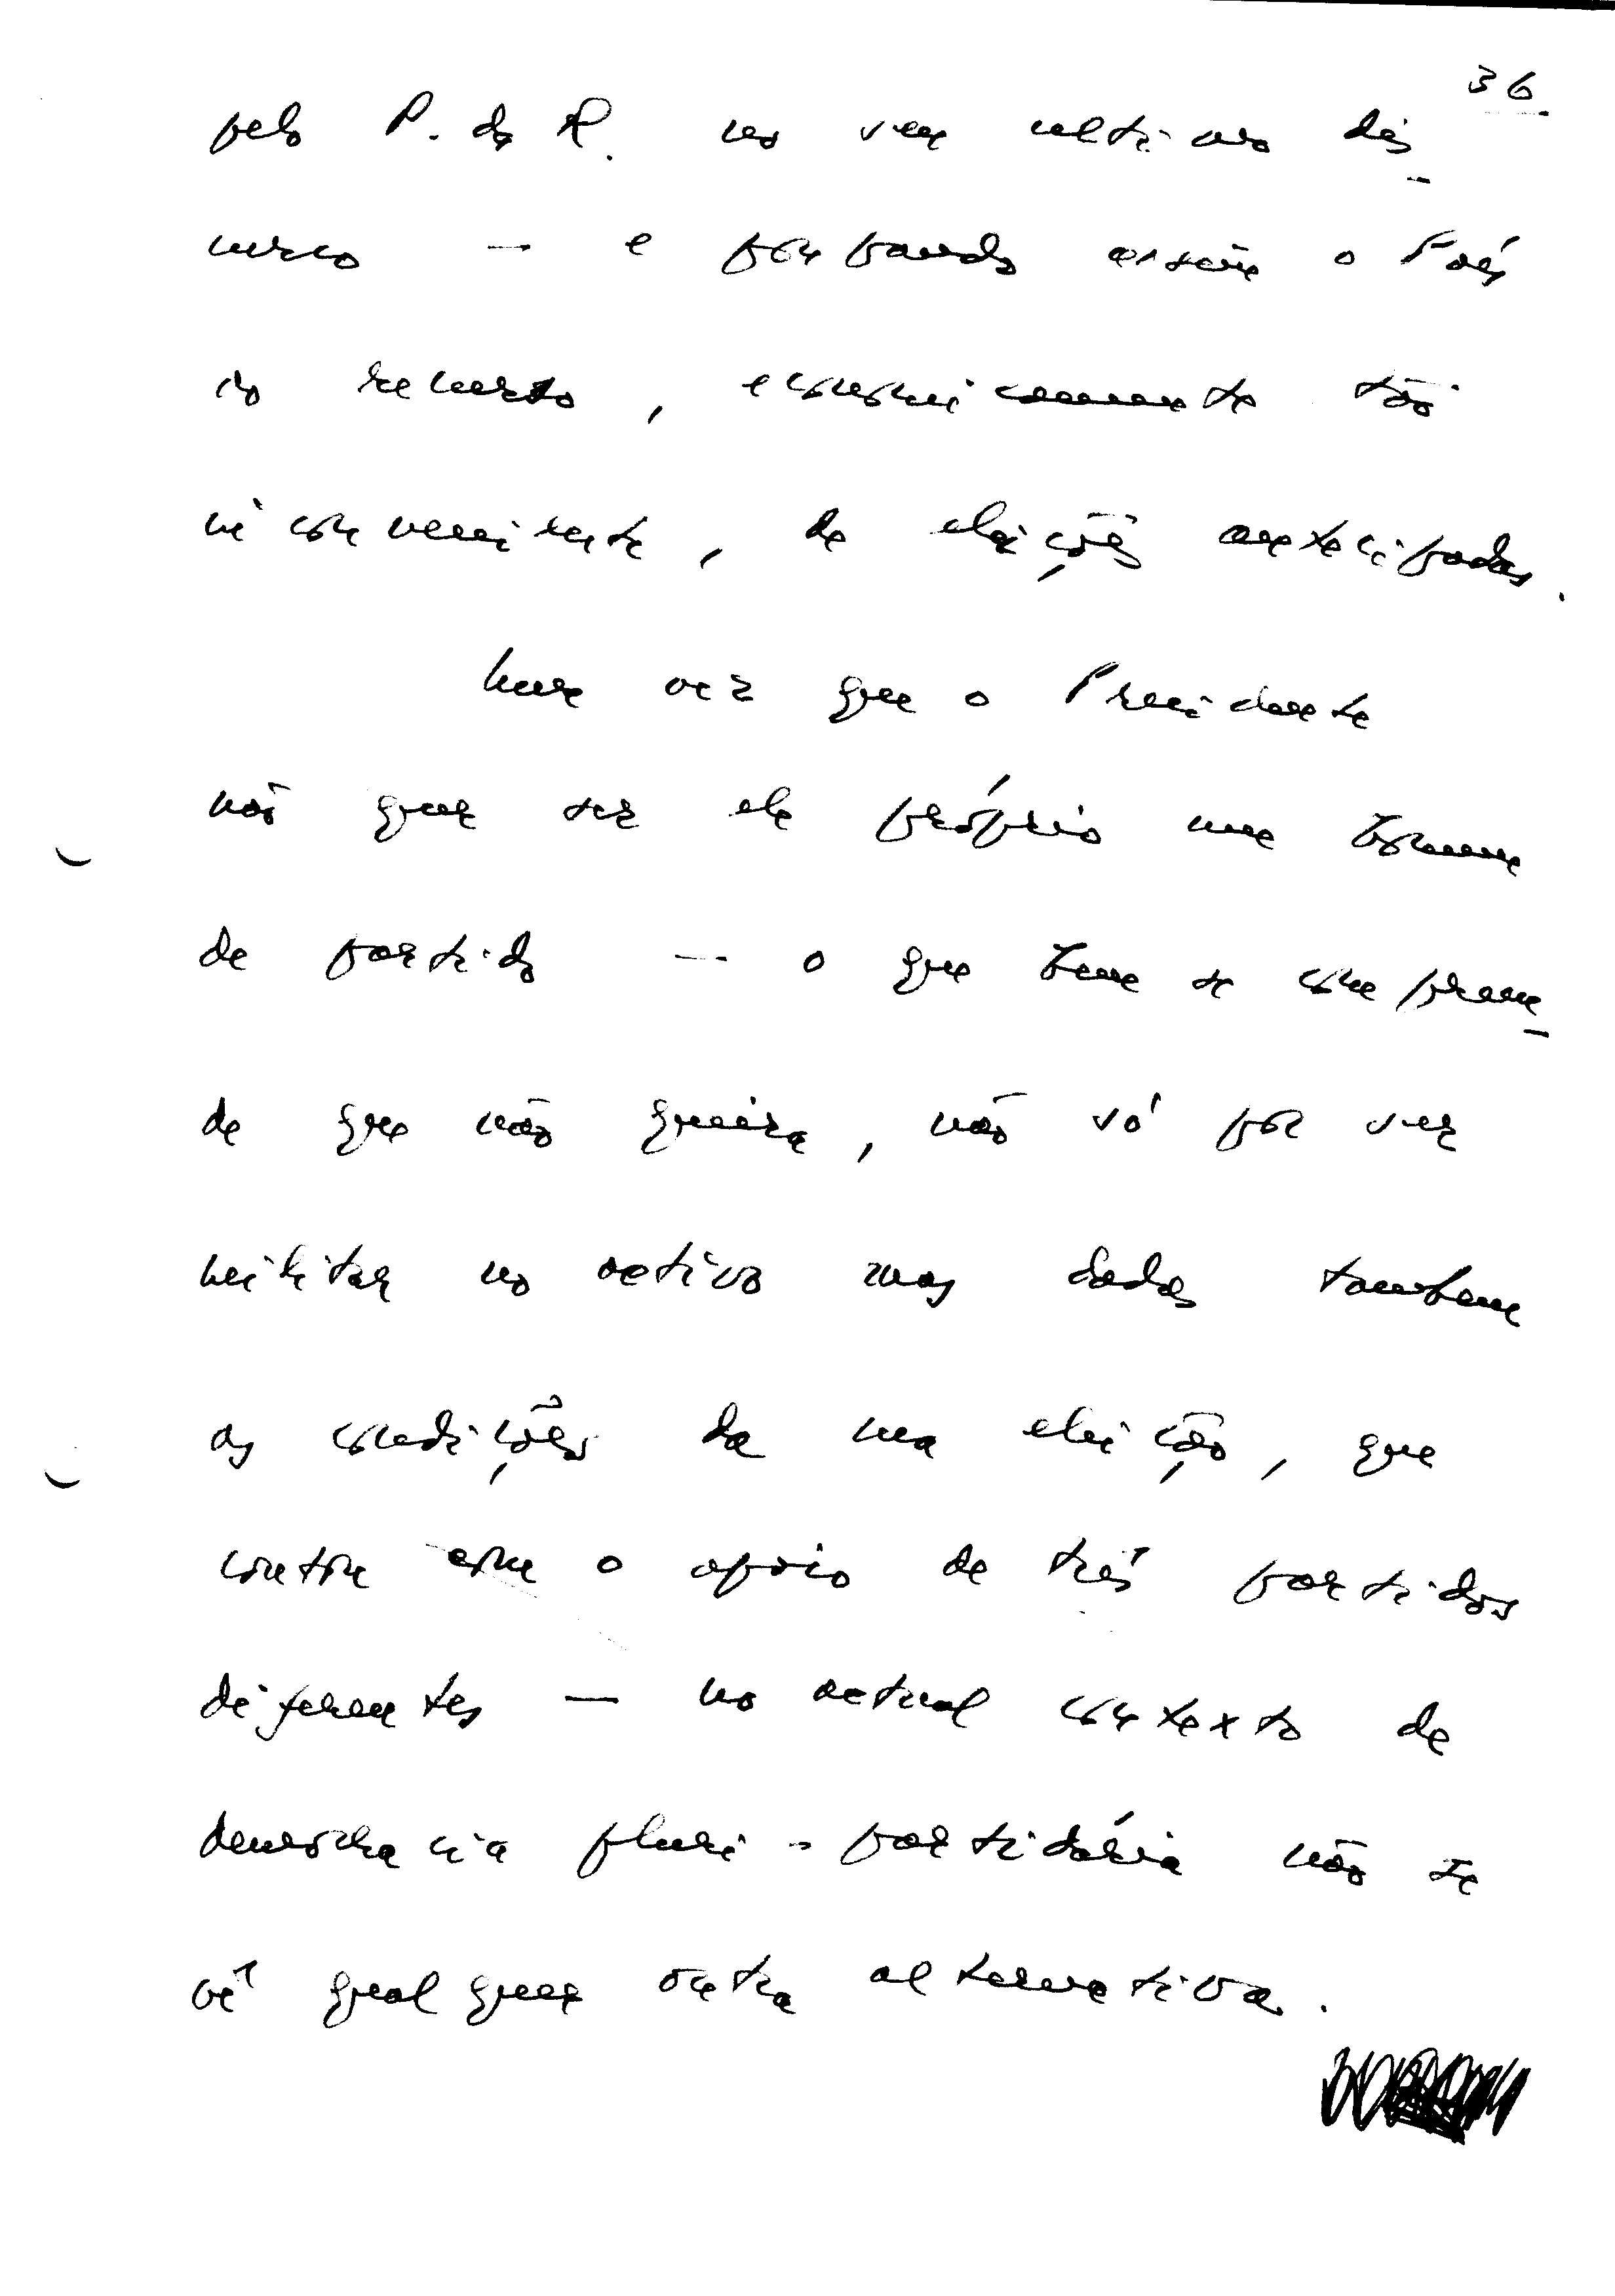 36.
pelo P. da R. no seu ultimo dis-
curso — e poupando assim o País
ao recurso, economicamente tão
inconveniente, de eleições antecipadas.
Uma vez que o Presidente
não quer ser ele próprio um homem
de partido — o que bem se compreen-
de que não queira, não só por ser
militar no activo mas dadas tambem
as condições da sua eleição, que
contou com o apoio de três partidos
diferentes — no actual contexto de
democracia pluri-partidária não se
vê qualquer outra alternativa.